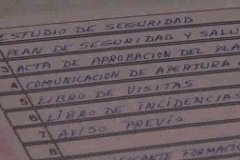 ESTUDIO DE SEGURIDAD
PLAN DE SEGURIDAD Y SALU
3 ACTA DE APROBACION DEL PLA
4 COMUNICACION DE APERTURA
5 LIBRO DE VISITAS
6 LIBRO DE INCIDENCIAS
7 AVISO PREVIO
8 FORMACIO